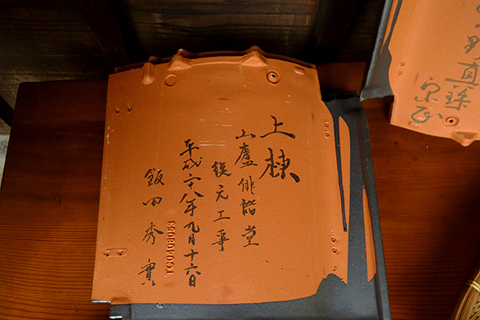 上棟
山廬俳諧堂
復元工事
平成二十八年九月十六日
飯田秀實
真珠
宗臣